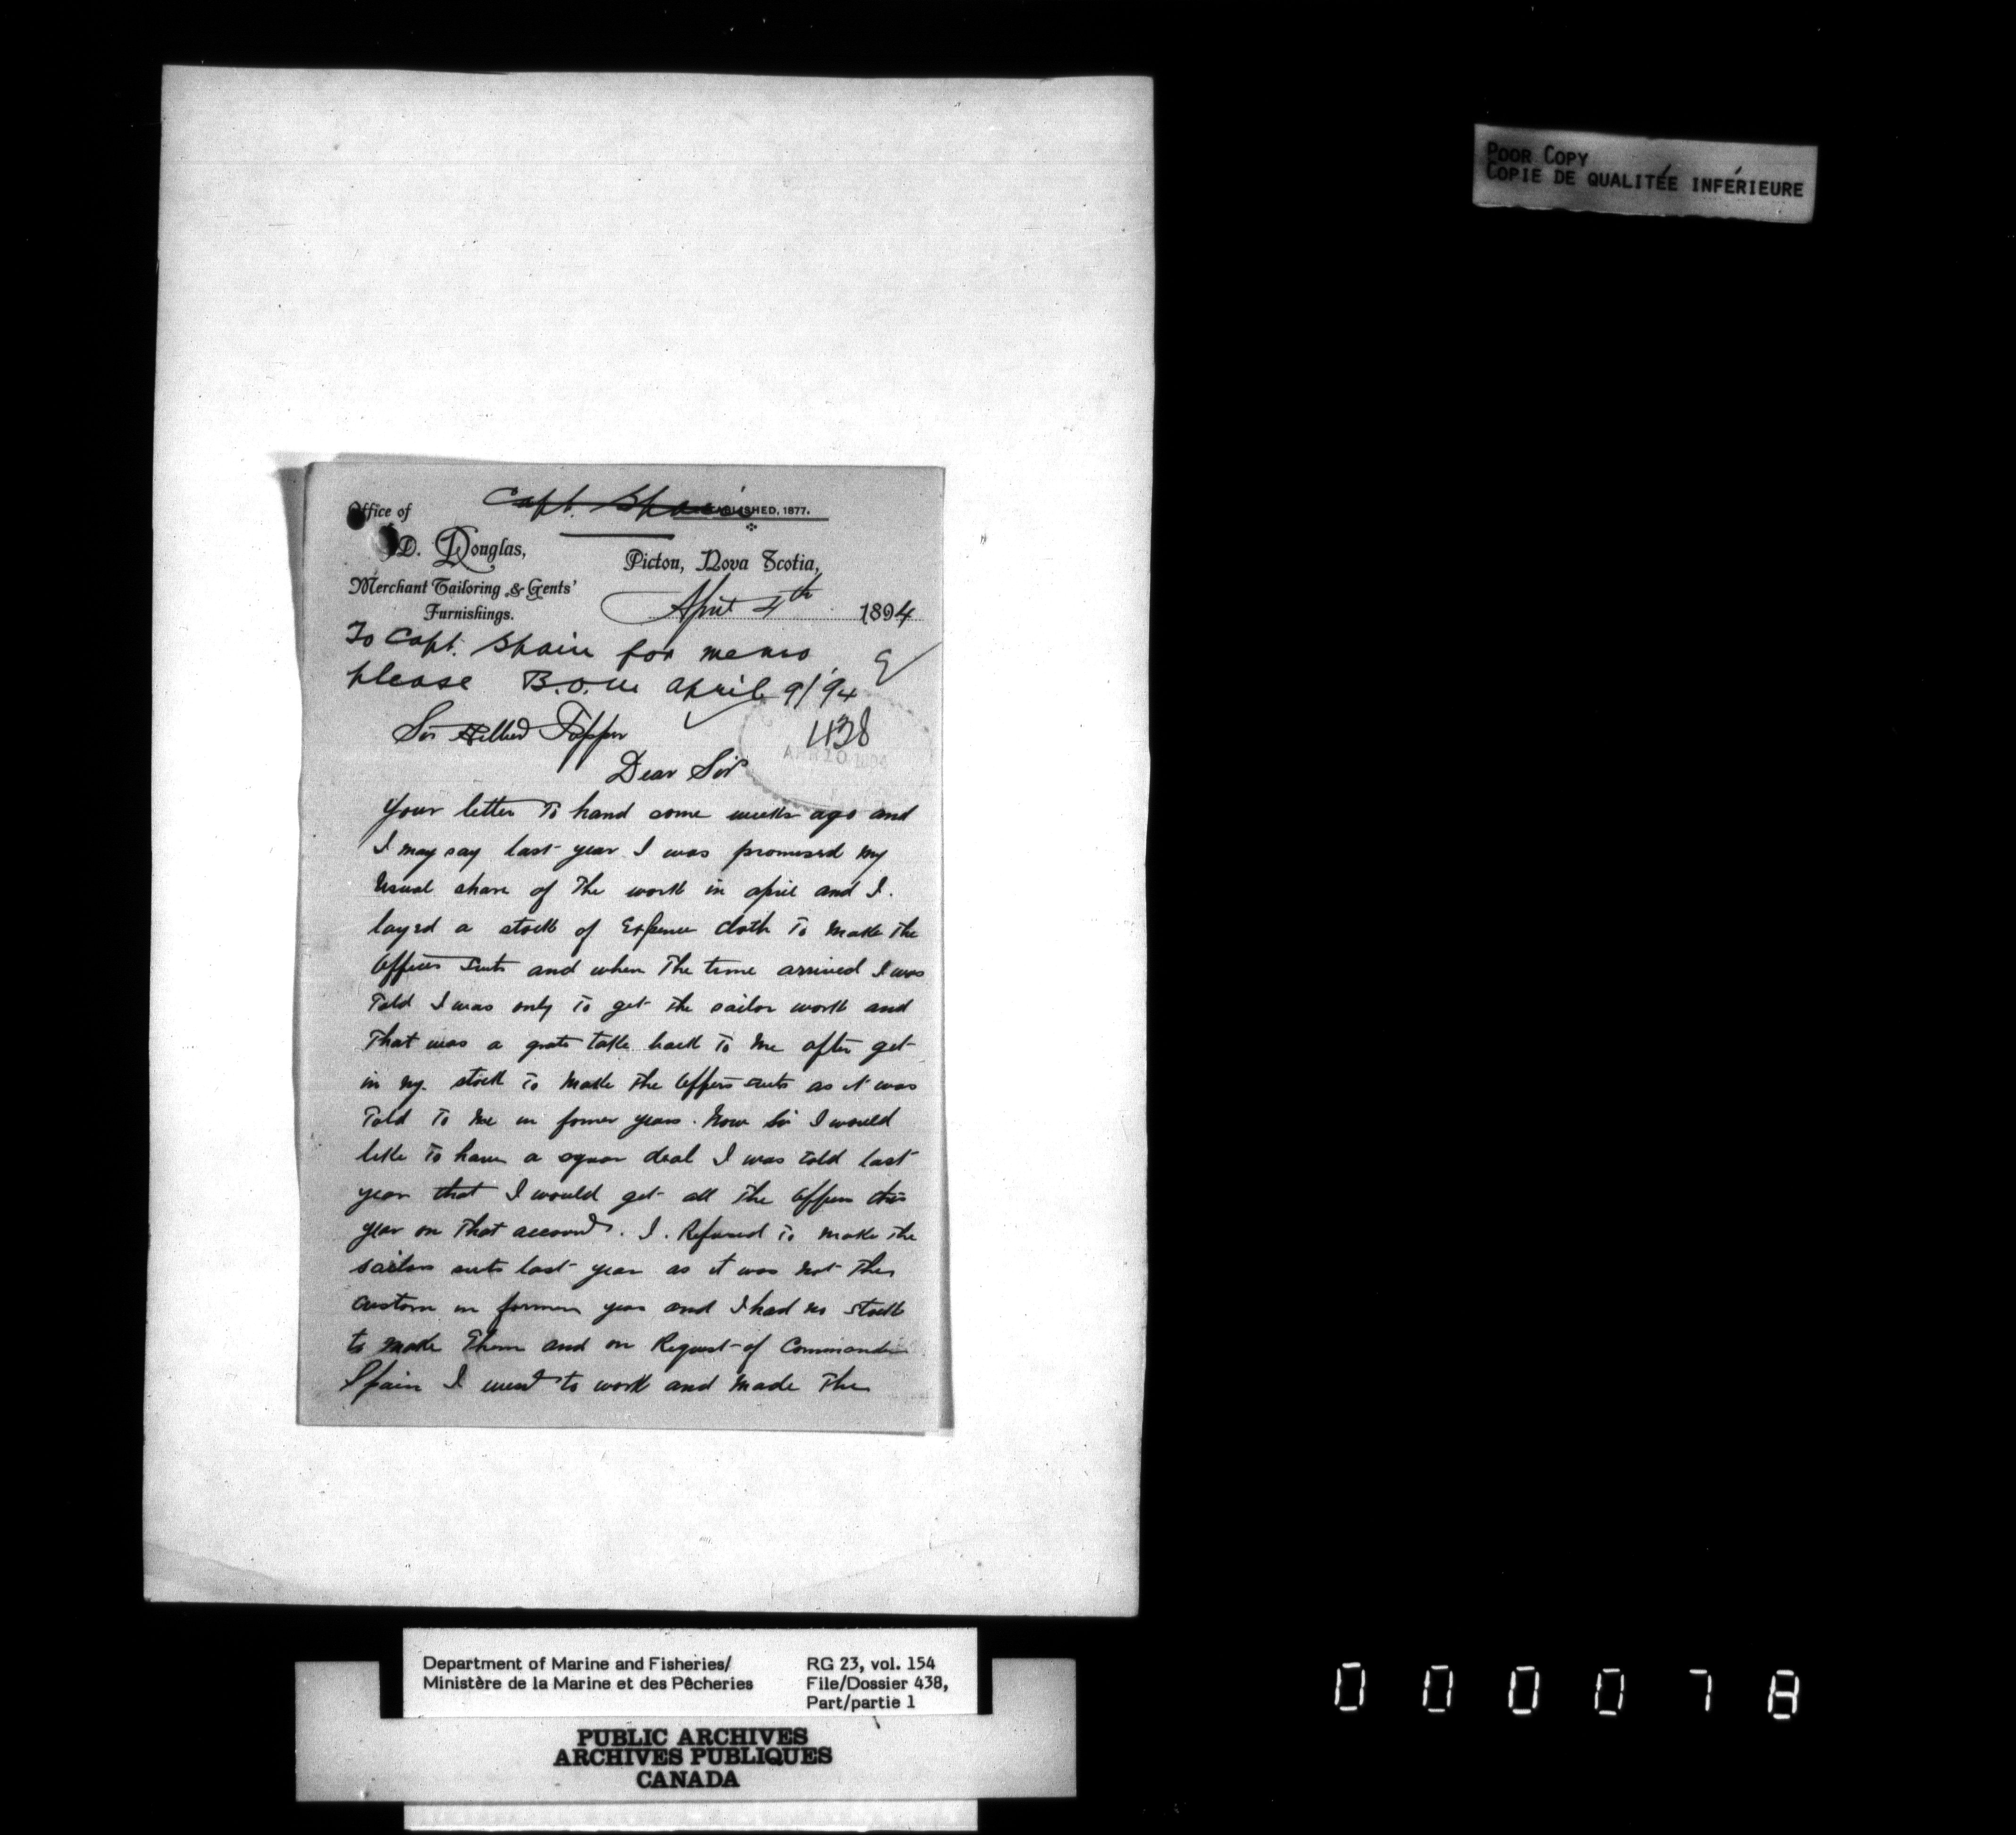 POOR COPY
COPIE DE QUALITÉE INFÉRIEURE
Capt. Spain
Office of
ESTABLISHED, 1877.
D. Douglas,
Pictou, Nova Scotia,
Merchant Tailoring & Gents'
Furnishings.
April 4th 1894
To Capt. Spain for memo
please April 9/94
438
Sir Tupper
Dear Sir
Your letter To hand some weeks ago and
I may say last year I was promised my
usual share of The work in april and I.
layed a stock of cloth To make The
Officers suts and when The time arrived I was
Told I was only To get The sailor work and
That was a grate take back To me after get
in my stock To make The Officers suts as it was
Told To me in former years. Now Sir I would
like To have a squar deal I was told last
year that I would get all The Officers this
year on That account. I. Refused To make The
sailors suts last year as it was not The
custom in former years and I had no stock
to make Them and on Request of Commander
Spain I went to work and made The
Department of Marine and Fisheries/
Ministère de la Marine et des Pêcheries
RG 23, vol. 154
File/Dossier 438,
Part/partie 1
PUBLIC ARCHIVES
ARCHIVES PUBLIQUES
CANADA
000078